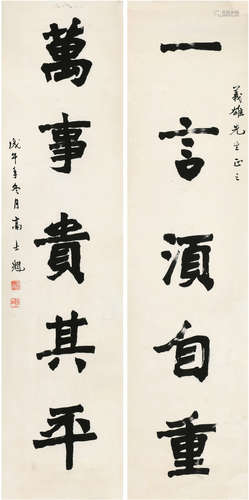 義雄先生正之
一言須自重
萬事貴其平
戊午年冬月高士魁